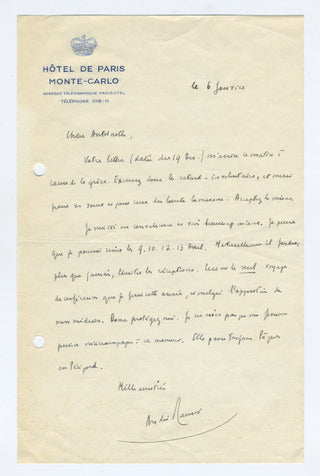 HÔTEL DE PARIS
MONTE-CARLO
ADRESSE TÉLÉGRAPHIQUE PARISOTEL
TÉLÉPHONE 018-11
le 6 Janvier
Chère Antoinette,
Votre lettre (datée des 19 Déc.) m'arrive ce matin à
cause de la grève. Excusez donc le retard - involontaire, et merci
pour vos vœux et pour ceux de toute la maison. Acceptez les miens.
Je suis ici en convalescence et vais beaucoup mieux. Je pense
que je pourrai venir le 9. 10. 12. 13 Avril. Naturellement il faudra,
plus que jamais, limiter les réceptions. Ce sera le seul voyage
de conférences que je ferai cette année, et malgré l'opposition de
mes médecins. Donc protégez-moi. Je ne crois pas que ma femme
puisse m'accompagner à ce moment. Elle passe toujours Pâques
en Périgord.
Mille amitiés
André Maurois